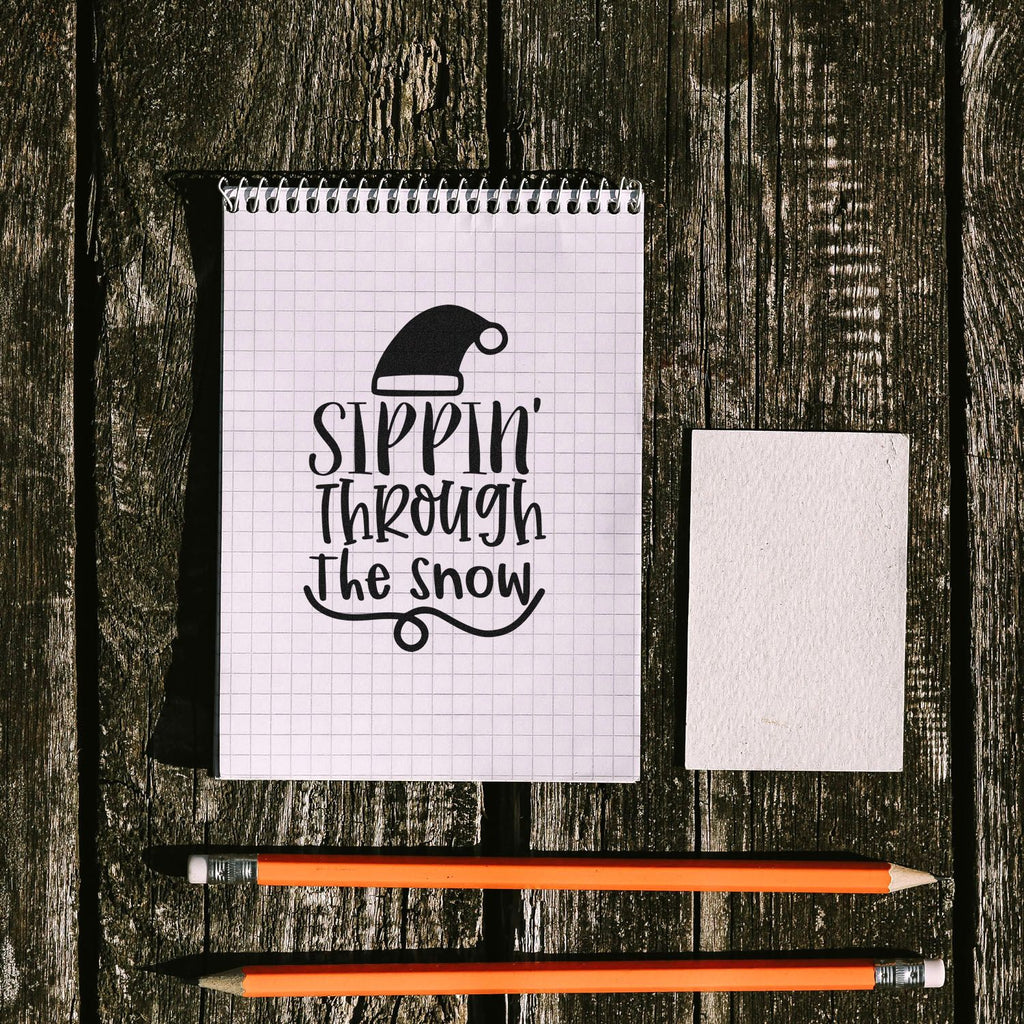 SIPPIN'
THROUGH
THE SNOW